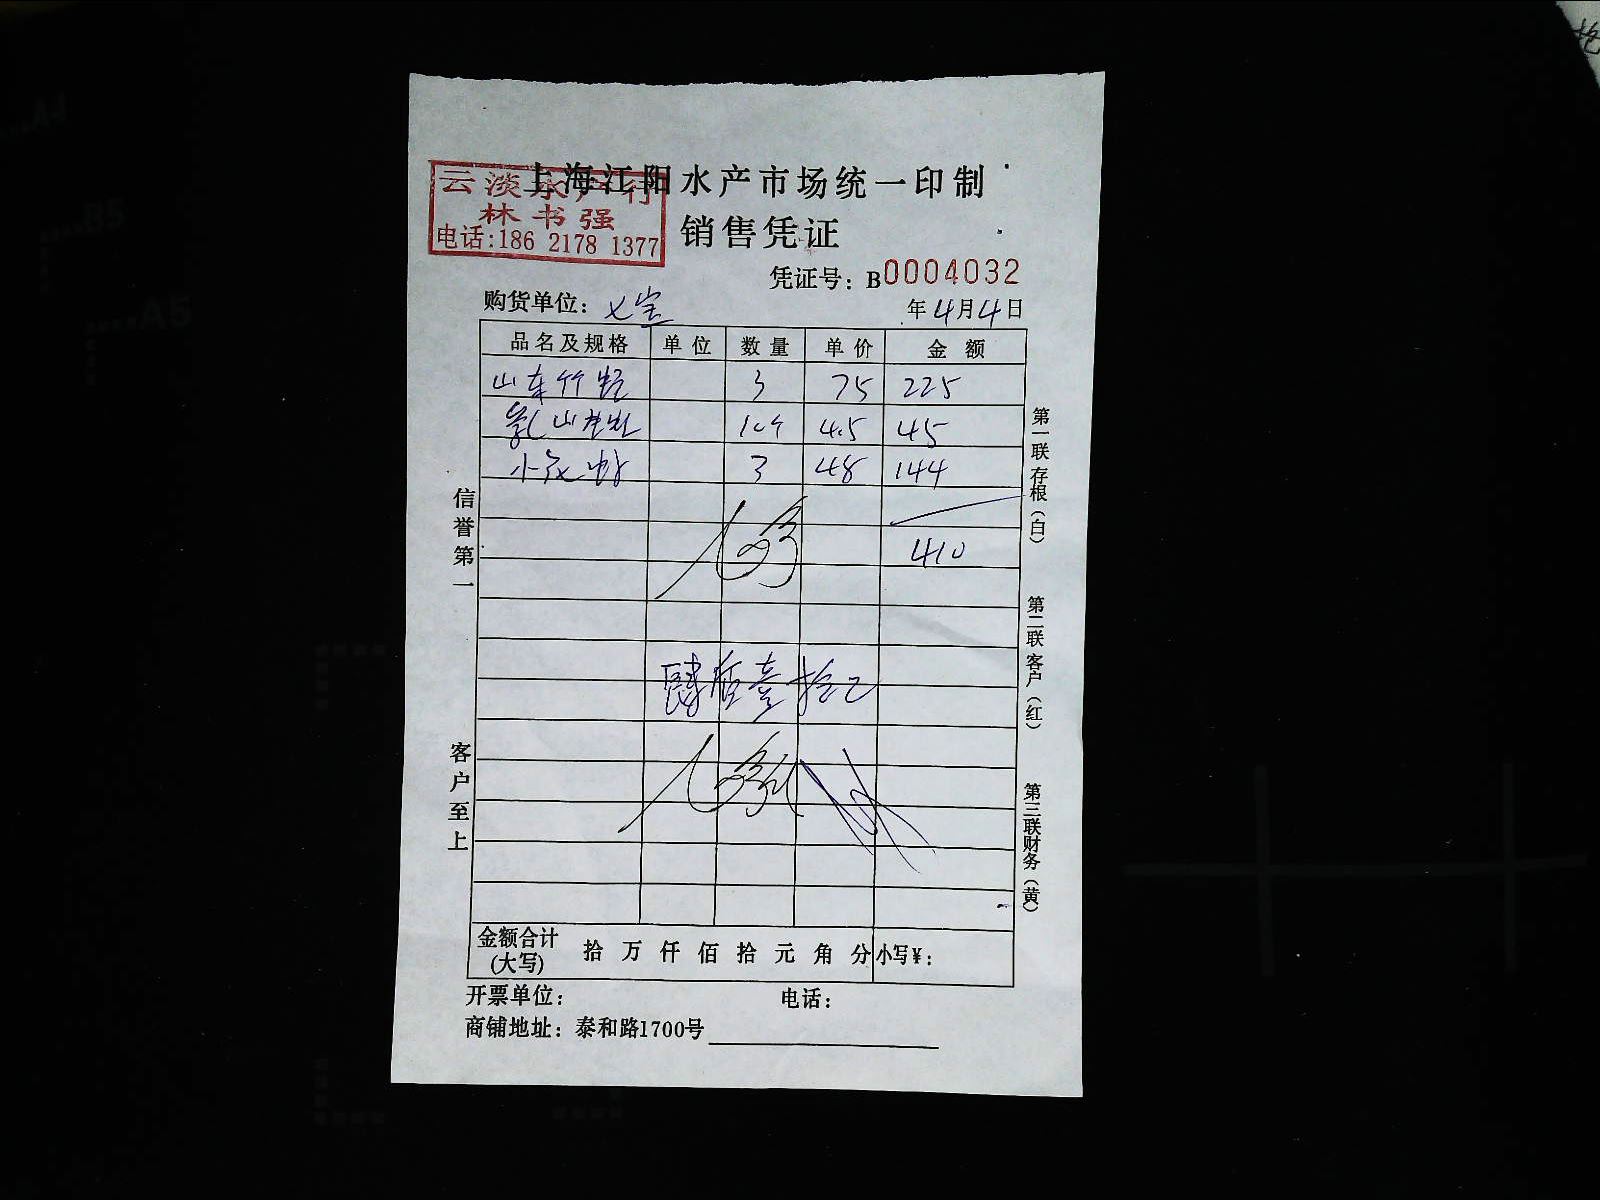 上海江阳水产市场统一印制
云淡水产行
林书强
电话:186 2178 1377
销售凭证
凭证号: B0004032
购货单位: 七宝
年4月4日
品名及规格 单位 数量 单价 金额
山东竹蛏 3 75 225
乳山生蚝 10个 4.5 45
小花蛤 3 48 144
410
肆佰壹拾元
信誉第一
客户至上
第一联存根(白)
第二联客户(红)
第三联财务(黄)
金额合计(大写) 拾 万 仟 佰 拾 元 角 分 小写¥:
开票单位: 电话:
商铺地址: 泰和路1700号